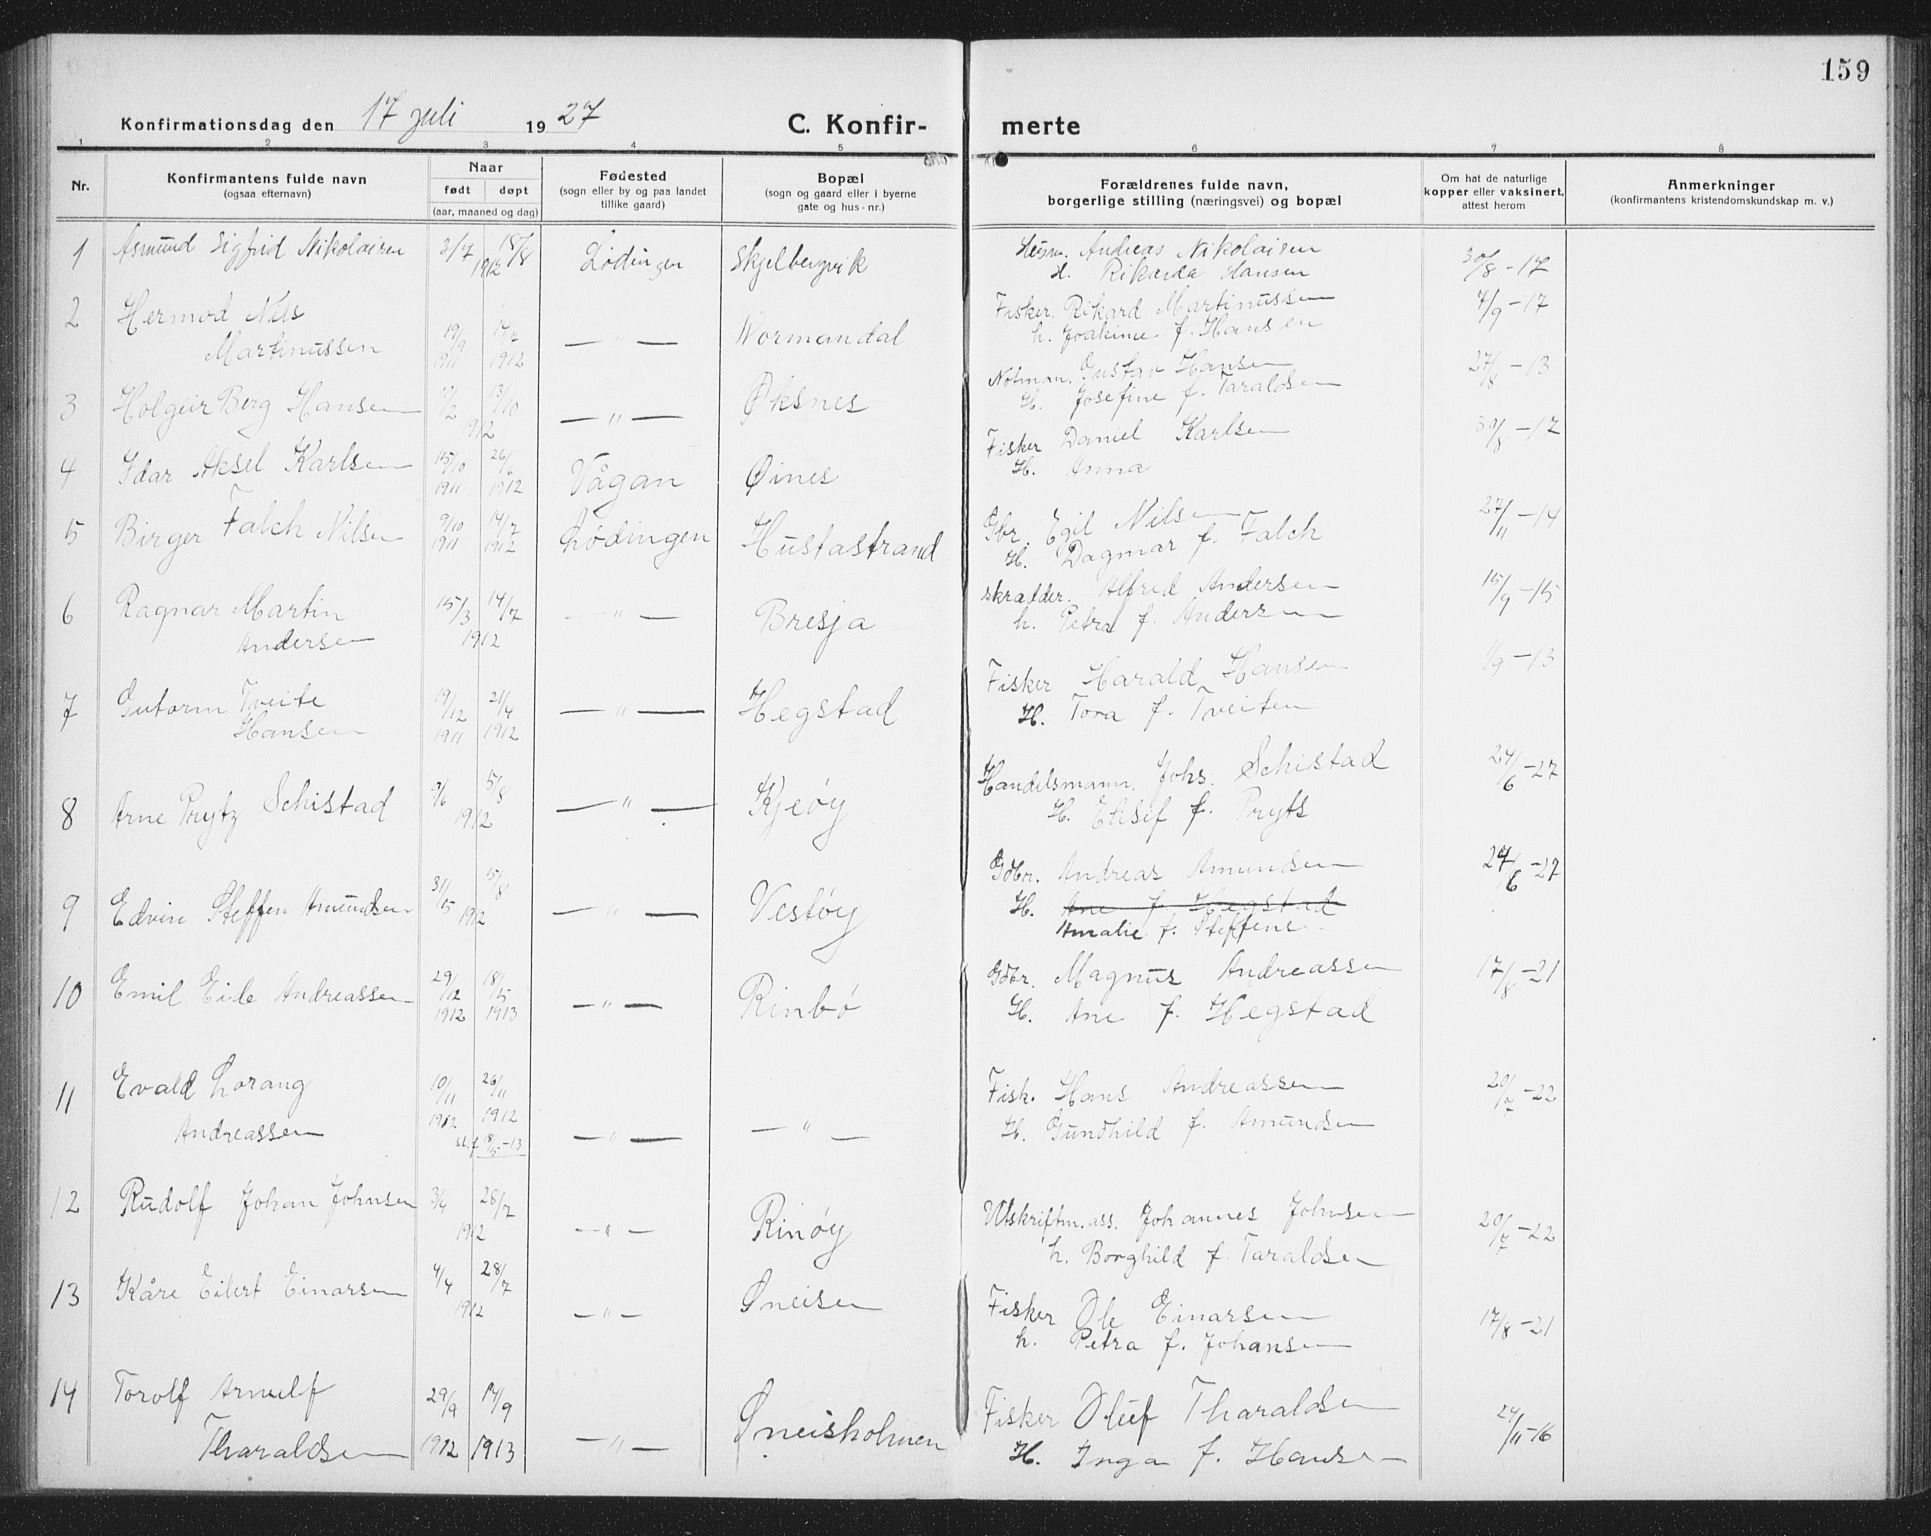 159
Konfirmationsdag den 17 juli 1927 C. Konfir- merte
1 2 3 4 5 6 7 8
Nr. Konfirmantens fulde navn (ogsaa efternavn) Naar født døpt (aar, maaned og dag) Fødested (sogn eller by og paa landet tillike gaard) Bopæl (sogn og gaard eller i byerne gate og hus-nr.) Forældrenes fulde navn, borgerlige stilling (næringsvei) og bopæl Om hat de naturlige kopper eller vaksinert, attest herom Anmerkninger (konfirmantens kristendomskundskap m. v.)
1 Asmund Sigfrid Nikolaisen 3/7 18/8 1912 Lødingen Skjelbergvik Andreas Nikolaisen 30/8-17
H. Rikarda Hansen
2 Hermod Nils Fisker. Rikard Martinussen 7/9-17
Martinussen 19/9 1911 14/7 1912 — " — Normandal h. Joakime f. Hansen
3 Holgeir Berg Hansen 13/10 1912 — " — Øksnes Notman. Gustav Hansen 27/8-13
H. Josefine f. Taraldsen
4 Idar Aksel Karlsen 15/10 1911 26/6 1912 Vågan Øines Fisker Daniel Karlsen 30/8-17
H. Anna
5 Birger Falch Nilsen 9/10 1911 14/7 1912 Lødingen Hustastrand Gbr. Egil Nilsen 27/11-14
H. Dagmar f. Falch
6 Ragnar Martin 15/3 14/7 — " — Bresja skrædder. Alfred Andersen 15/9-15
Andersen 1912 h. Petra f. Andersen
7 Gutorm Tveite 19/12 21/4 — " — Hegstad Fisker Harald Hansen 1/9-13
Hansen 1911 1912 H. Tora f. Tveiten
8 Arne Prytz Schistad 3/6 5/8 1912 — " — Kjeøy Handelsmann. Johs. Schistad 24/6-27
H. Elisif f. Pryts
9 Edvin Steffen Amundsen 31/5 5/8 1912 — " — Vestøy Gdbr. Andreas Amundsen 24/6-27
H. Ane f. Hegstad
Amalie f. Steffens
10 Emil Eide Andreassen 29/12 1912 18/5 1913 — " — Rinbø Gdbr. Magnus Andreassen 17/8-21
H. Ane f. Hegstad
11 Evald Lorang 10/11 1912 26/11 1912 Fisk. Hans Andreassen 20/7-22
Andreassen 18/5-13 — " — — " — H. Gundhild f. Amundsen
12 Rudolf Johan Johnsen 3/4 28/7 1912 — " — Rinøy Utskriftn.ass. Johannes Johnsen 20/7-22
h. Borghild f. Taraldsen
13 Kåre Eilert Einarsen 4/4 28/7 1912 — " — Sneisen Fisker Ole Einarsen 17/8-21
h. Petra f. Johansen
14 Torolf Arnulf 29/9 14/9 Fisker Oluf Tharaldsen 24/11-16
Tharaldsen 1912 1913 — " — Sneisholmen H. Inga f. Hansen